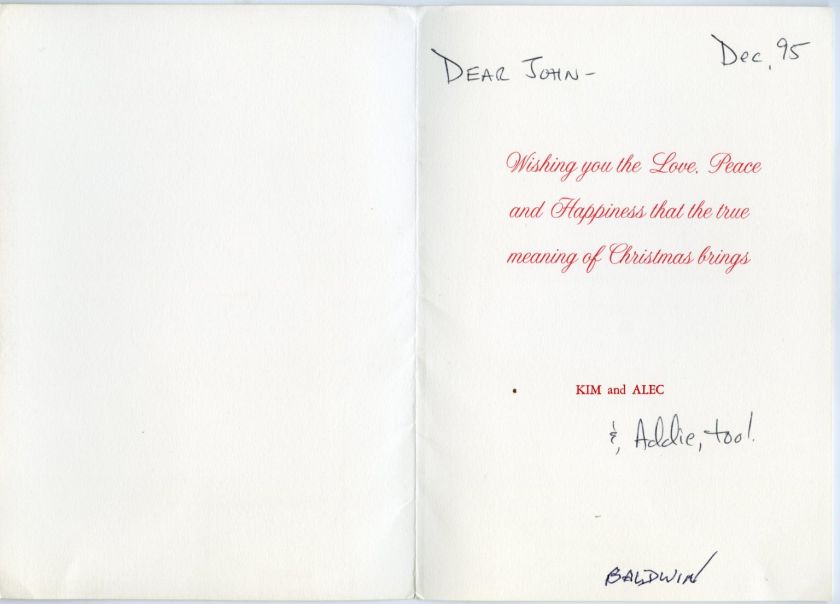 Dec, 95
DEAR JOHN-
Wishing you the Love, Peace
and Happiness that the true
meaning of Christmas brings
KIM and ALEC
&, Addie, too!
BALDWIN